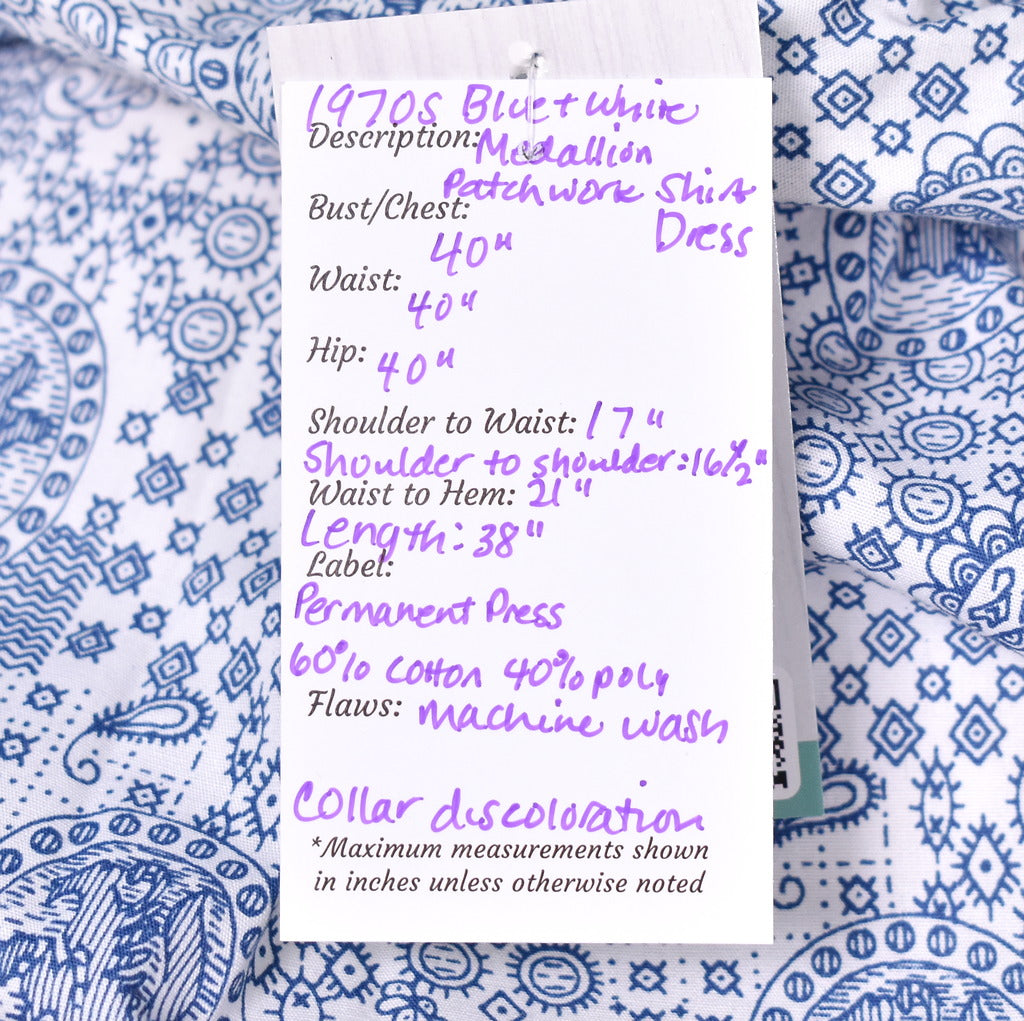 1970s Blue + White
Description: Medallion
Patchwork Shirt
Bust/Chest: Dress
40"
Waist:
40"
Hip: 40"
Shoulder to Waist: 17"
Shoulder to shoulder: 16 1/2"
Waist to Hem: 21"
Length: 38"
Label:
Permanent Press
60% cotton 40% poly
Flaws: machine wash
Collar discoloration
*Maximum measurements shown
in inches unless otherwise noted